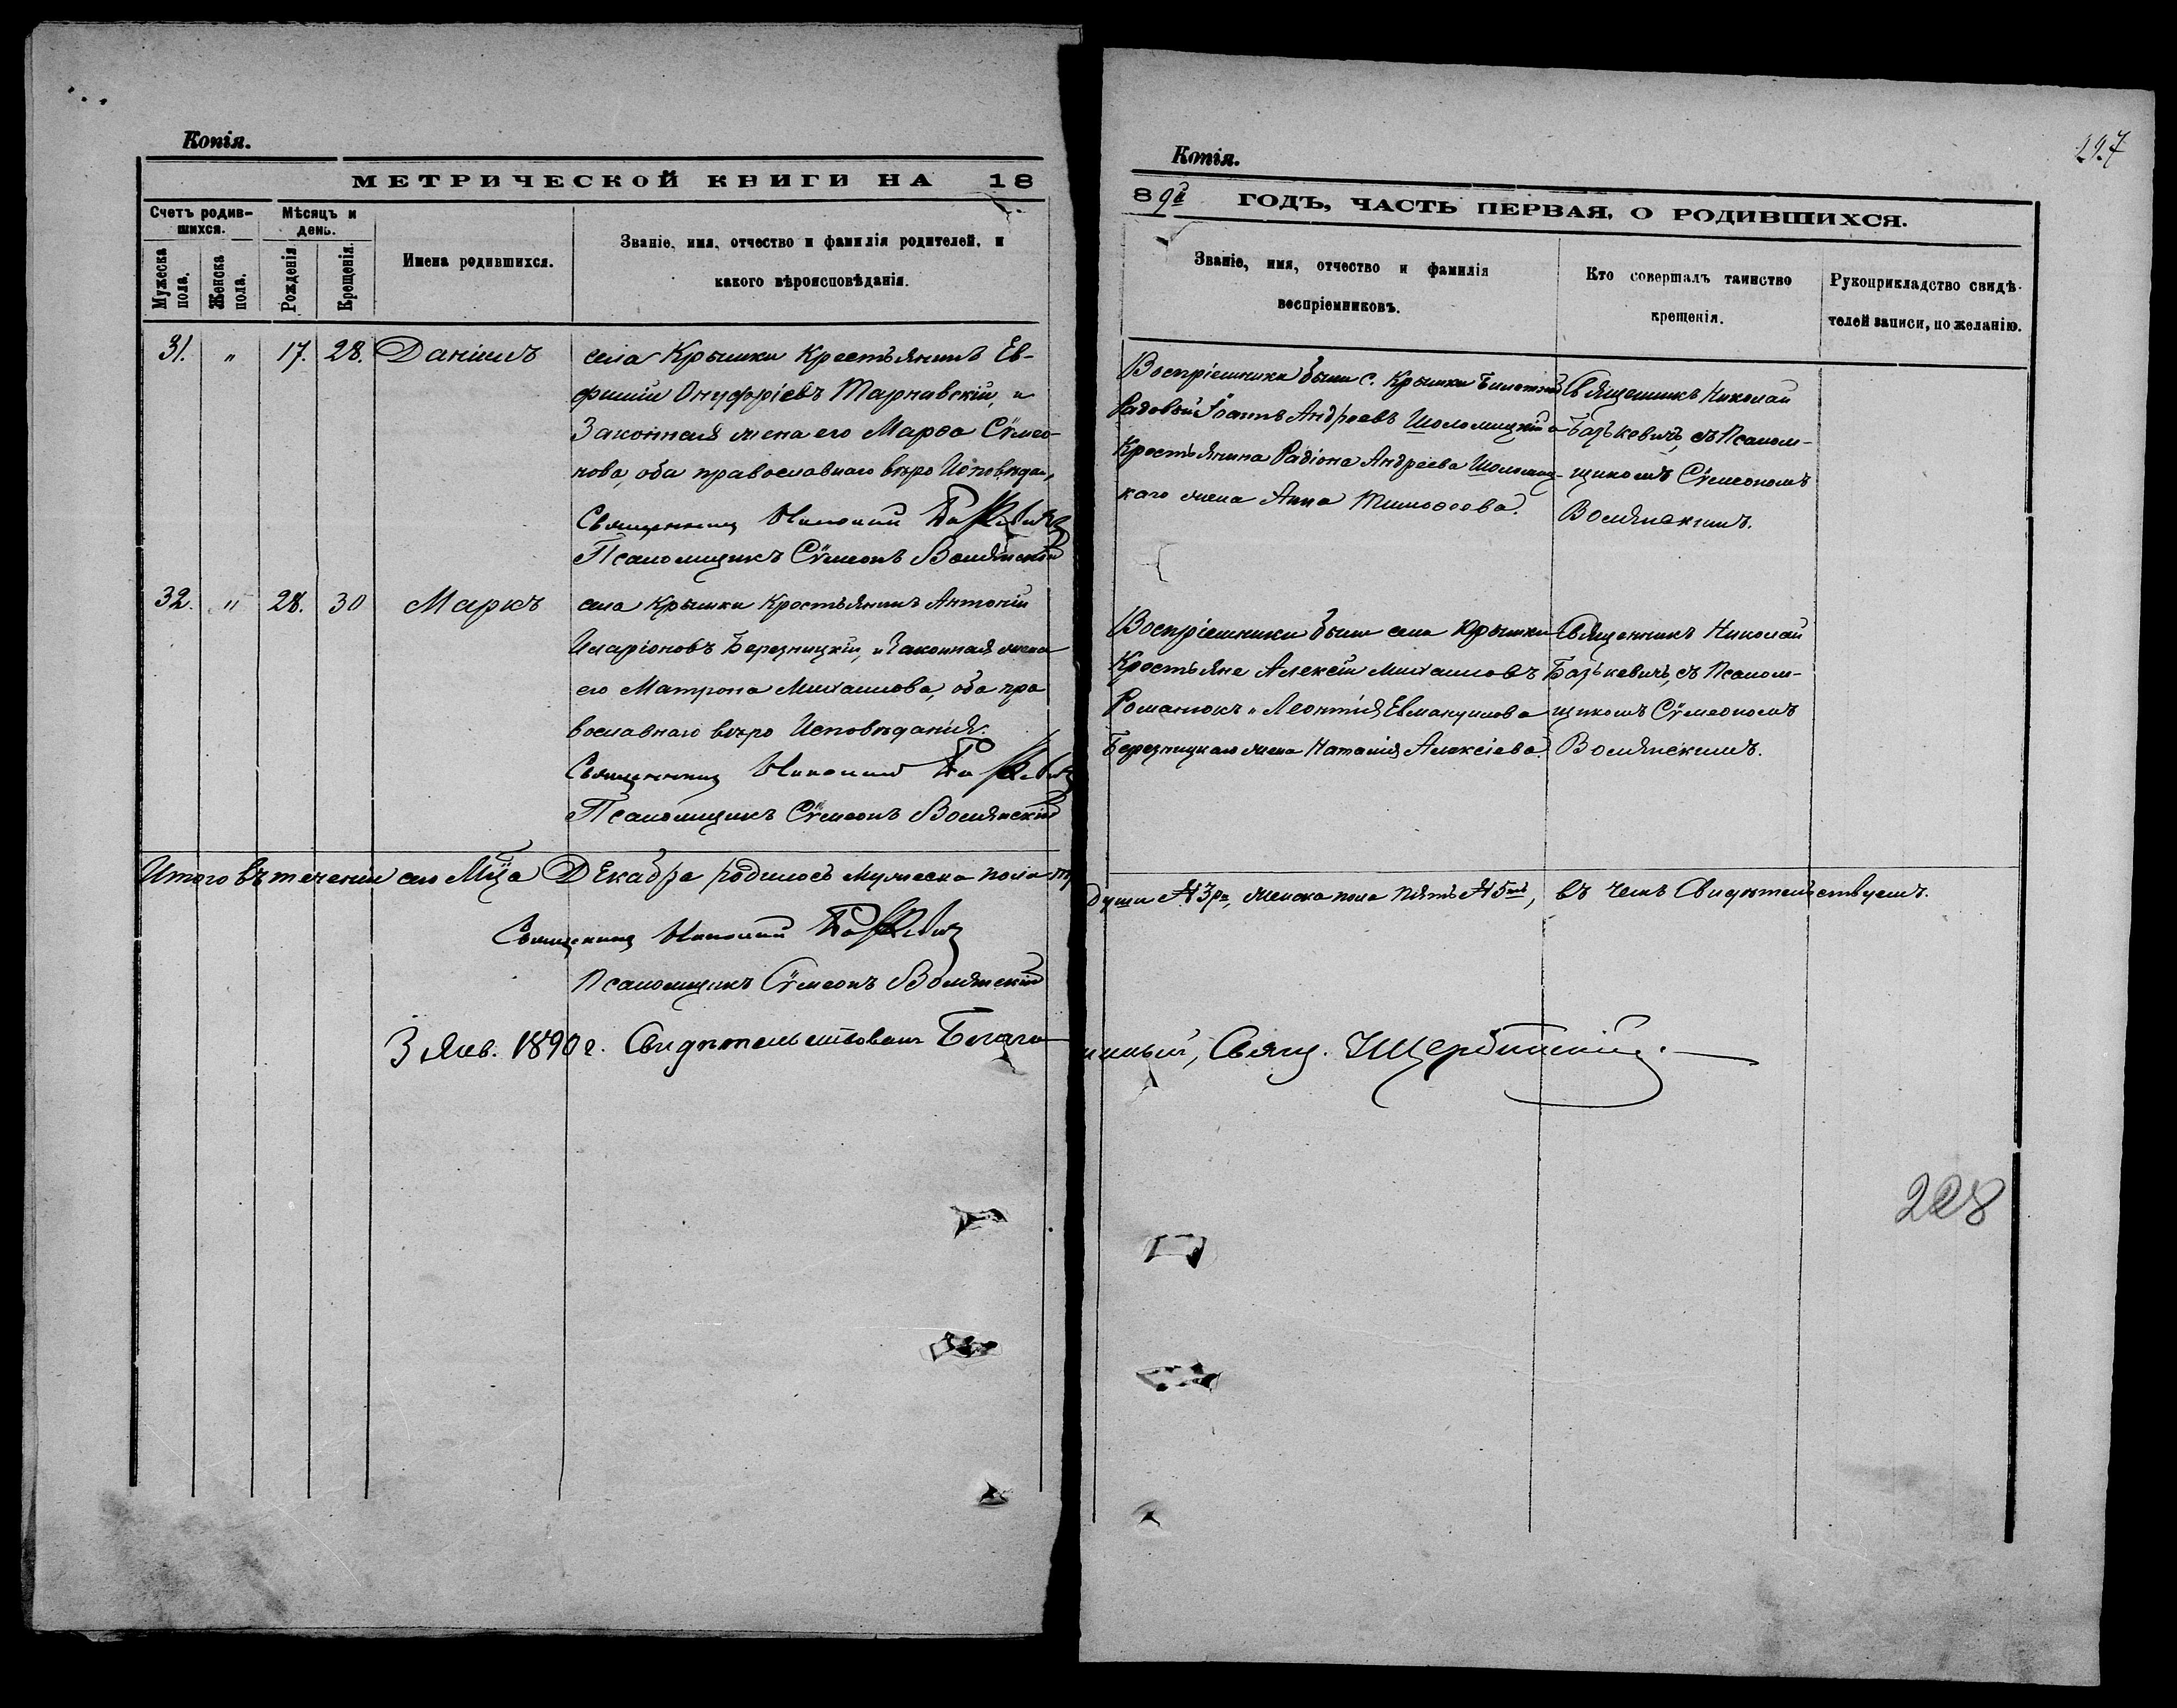 Копія.
МЕТРИЧЕСКОЙ КНИГИ НА 18
Счетъ родившихся.
Мѣсяцъ и день.
Мужеска пола.
Женска пола.
Рожденія
Крещенія.
Имена родившихся.
Званіе, имя, отчество и фамилія родителей, и
какого вѣроисповѣданія.
31. " 17. 28. Даніилъ
села Крымки Крестьянинъ Ев-
фимій Онуфріевъ Тарнавскій, и
Законная жена его Марѳа Сѵмео-
нова, оба православнаго вѣро Исповѣдан,
Священникъ Николай
Псаломщикъ Сѵмеонъ Волянскій
32. " 28. 30 Маркъ
села Крымки Крестьянинъ Антоній
Иларіоновъ Березницкій, и Законная жена
его Матрона Михаилова, оба пра
вославнаго вѣро Исповѣданія.
Священникъ Николай
Псаломщикъ Сѵмеонъ Волянскій
Итого въ теченіи сего Мца Декабря родилось мужеска пола
Священникъ Николай
Псаломщикъ Сѵмеонъ Волянскій
3 Янв. 1890 г. Свидѣтельствовалъ Благо
Копія.
227
89й ГОДЪ, ЧАСТЬ ПЕРВАЯ, О РОДИВШИХСЯ.
Званіе, имя, отчество и фамилія
воспріемниковъ.
Кто совершалъ таинство
крещенія.
Рукоприкладство свидѣ-
телей записи, по желанію.
Воспріемники были с. Крымки Билетный
Рядовый Іоаннъ Андреевъ Шоломицкій и
Крестьянина Радіона Андреева Шоломиц-
каго жена Анна Тимоѳеева.
Священникъ Николай
Базькевичъ, съ Псалом-
щикомъ Сѵмеономъ
Волянскимъ.
Воспріемники были села Крымки
Крестьяне Алексій Михаиловъ
Романюкъ и Леонтія Евмануилова
Березницкаго жена Наталія Алексіева.
Священникъ Николай
Базькевичъ, съ Псалом-
щикомъ Сѵмеономъ
Волянскимъ.
души № 3ри, женска пола пять № 5ть, въ чемъ Свидѣтельствуемъ.
чинный, Свящ. Щербинскій.
228